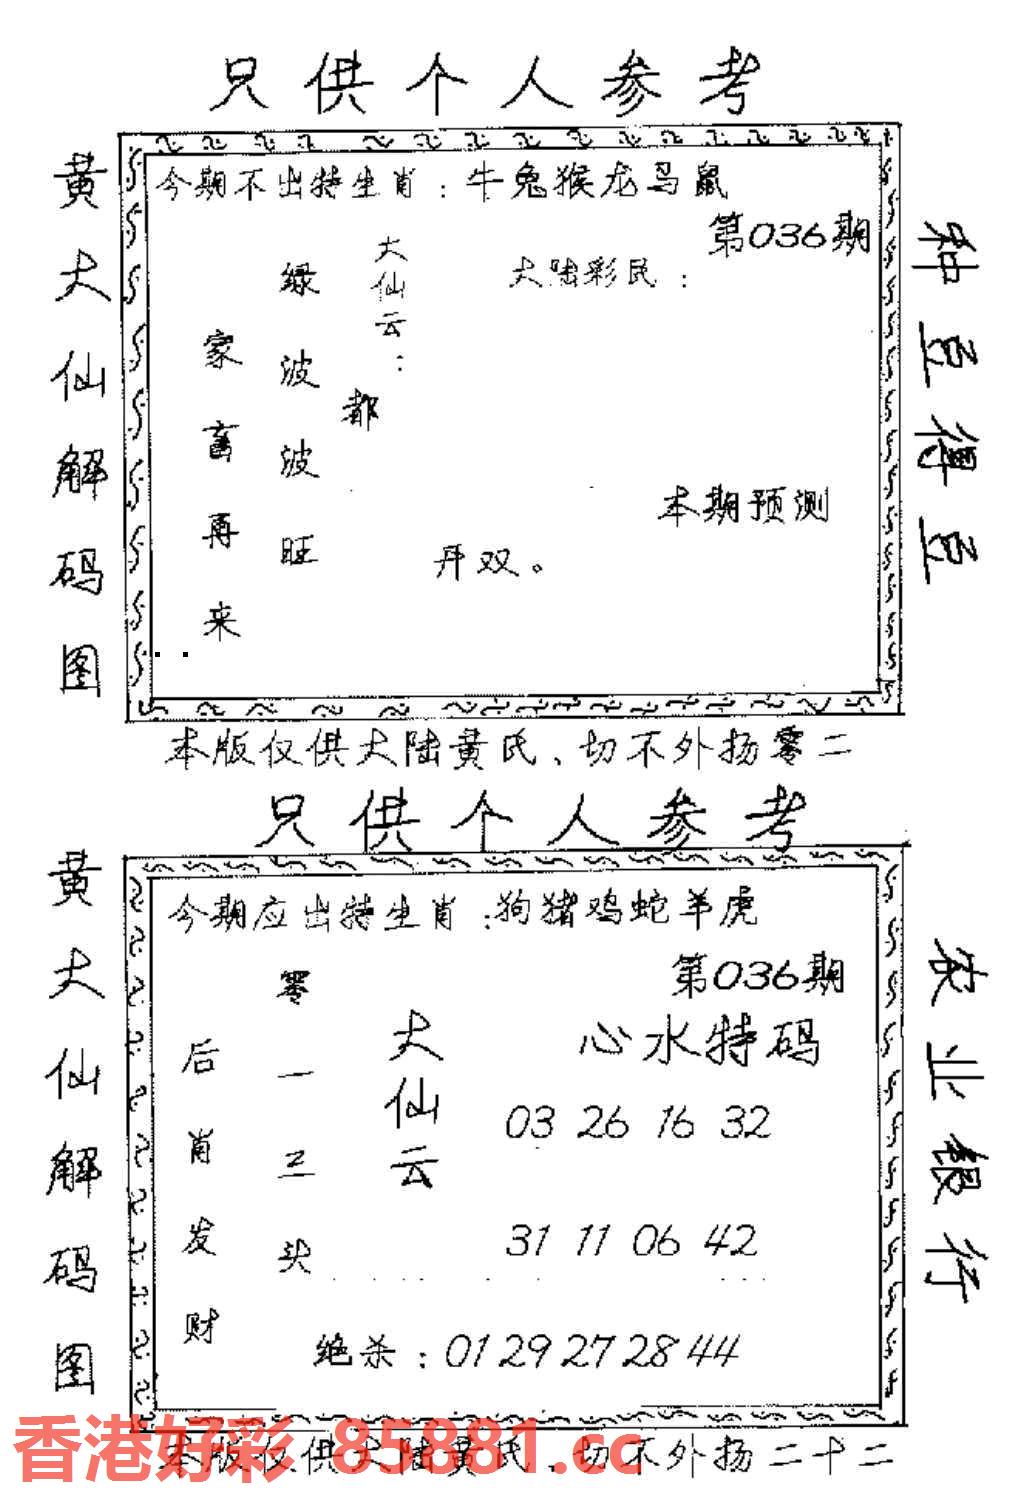 只供个人参考
黄大仙解码图
今期不出特生肖：牛兔猴龙马鼠
第036期
大陆彩民：
大仙云：
绿波波旺
都
家畜再来
本期预测
开双。
种豆得豆
本版仅供大陆黄氏、切不外扬零二
只供个人参考
黄大仙解码图
今期应出特生肖：狗猪鸡蛇羊虎
第036期
心水特码
大仙云
零一三头
后肖发财
03 26 16 32
31 11 06 42
绝杀：01 29 27 28 44
农业银行
本版仅供大陆黄氏、切不外扬二十二
香港好彩 85881.cc